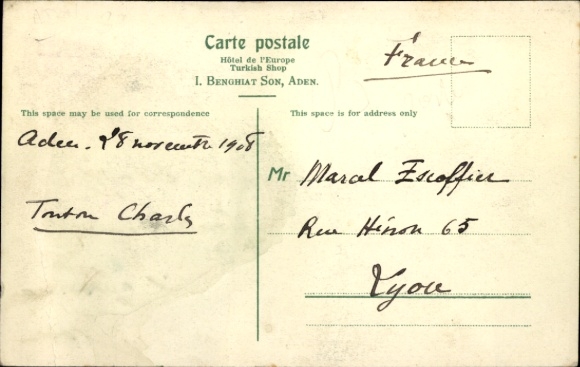 Carte postale
Hôtel de l'Europe
Turkish Shop
I. BENGHIAT SON, ADEN.
France
This space may be used for correspondence
This space is for address only
Aden. 28 novembre 1908
Mr Marcel Escoffier
Tonton Charles
Rue Hénon 65
Lyon